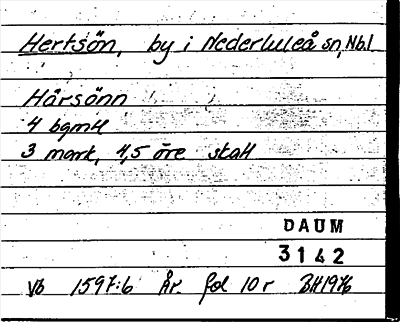 Hertsön, by i Nederluleå sn, Nb.l
Hårsönn
4 bgmtl
3 mark, 4,5 öre skatt
DAUM
3142
Vb 1597:6 År fol 10 r BH1976